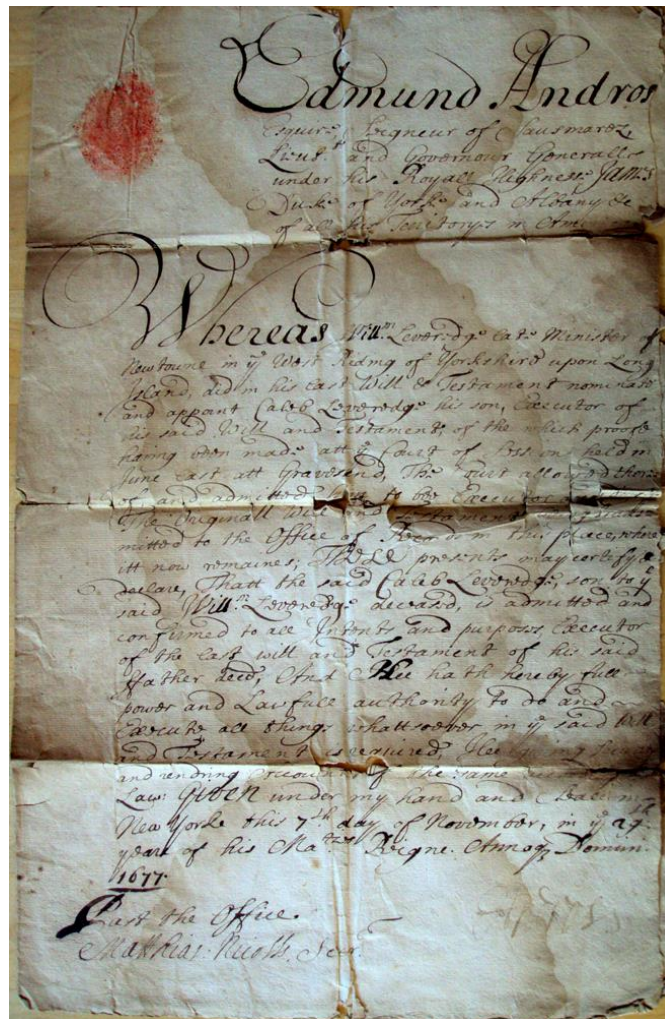 Edmund Andros
Esquire, Seigneur of Sausmarez,
Lieut.t and Governour Generall
under his Royall Highness James
Duke of Yorke and Albany &c
of all his Territorys in Am
Whereas Will.m Leveredge late Minister of
Newtowne in ye West Riding of Yorkshire upon Long
Island, did in his last Will & Testament nominate
and appoint Caleb Leveredge his son, Executor of
his said Will and Testament, of the which proofe
having been made att ye Court of Session held in
June last att Gravesend, The Court allowed there
of, and admitted him to be Executor
The Originall Will and Testament
mitted to the Office of Record in this place, where
itt now remaines, These presents may certify &
declare, Thatt the said Caleb Leveredge, son to ye
said Will.m Leveredge deceased, is admitted and
confirmed to all Intents and purposes, Executor
of the last will and Testament of his said
ffather decd, And Hee hath hereby full
power and Lawfull authority to do and
Execute all things whattsoever in ye said Will
and Testament required, Hee
and rendring Account of the same
Law: Given under my hand and Seale in
New Yorke this 7th day of November, in ye 29th
yeare of his Maties Reigne. Annoq Domini
1677.
Past the Office.
Matthias Nicolls. Secr.